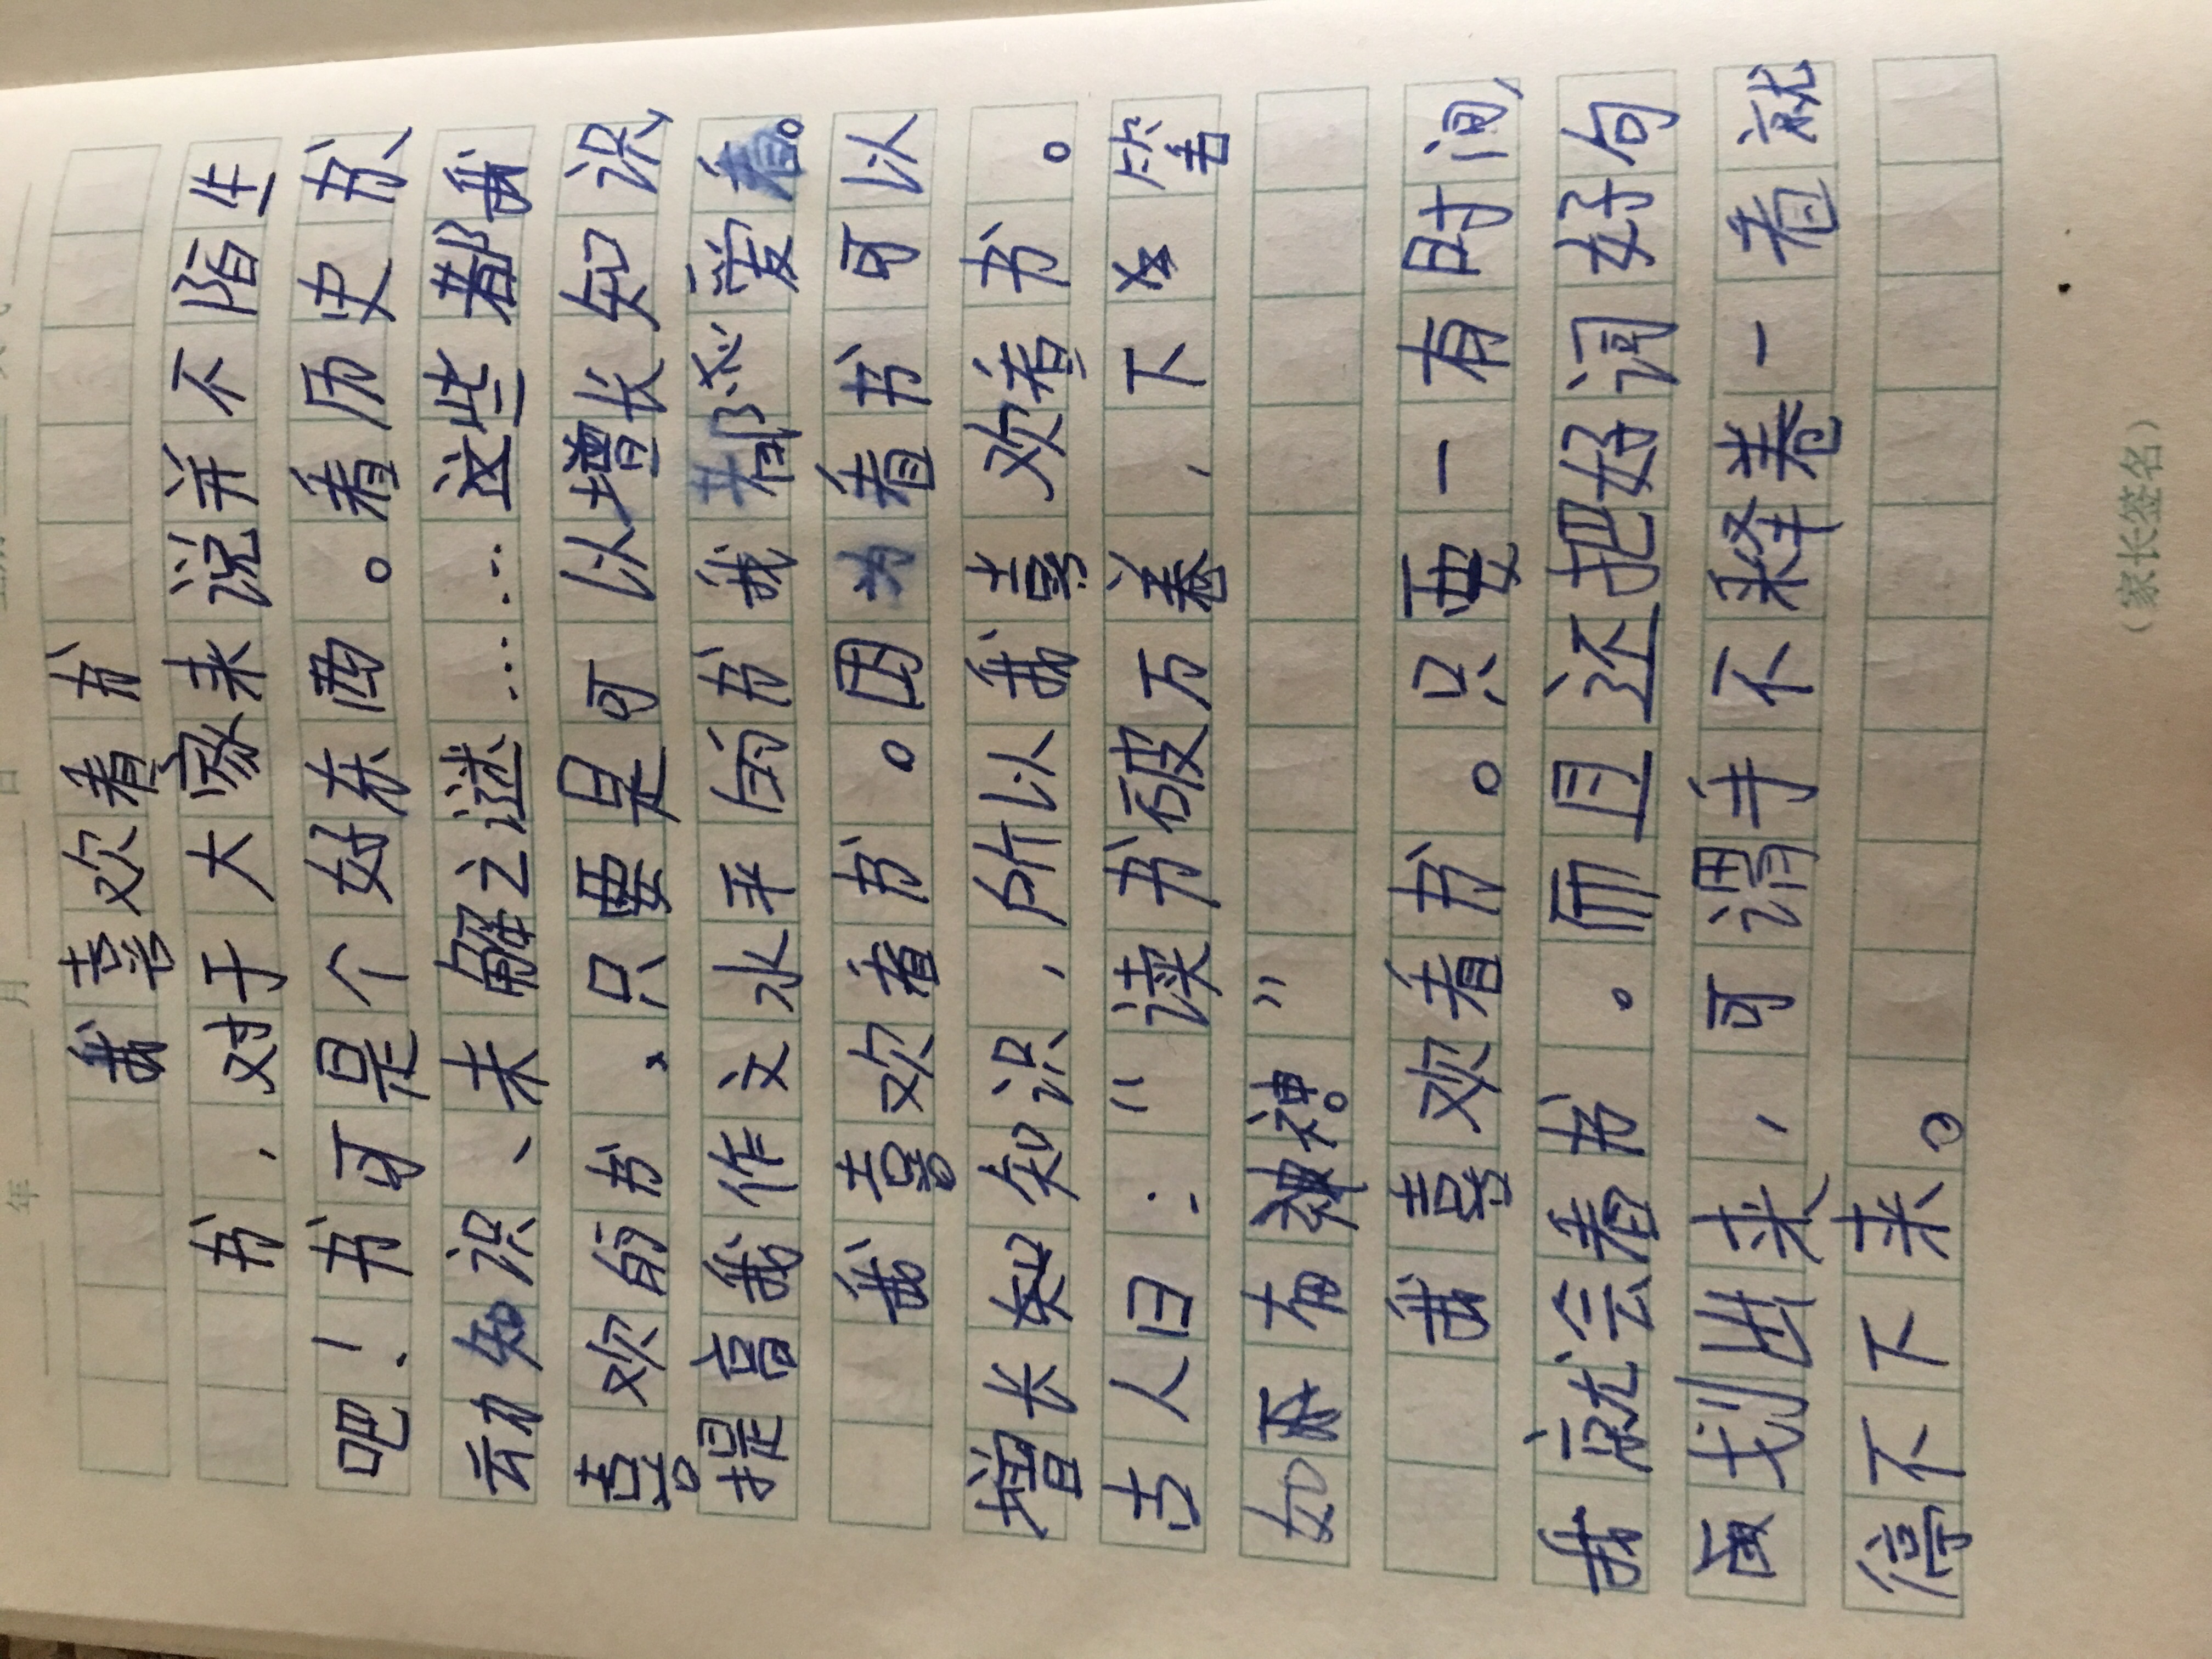 年 月 日
我喜欢看书
书，对于大家来说并不陌生
吧！书可是个好东西。看历史书、
动知识、未解之谜……这些都我
喜欢的书，只要是可以增长知识，
提高我作文水平的书我都恋爱看。
我喜欢看书。因为看书可以
增长知知识，所以我喜欢看书。
古人曰：“读书破万卷，下笔
如有神。”
我喜欢看书。只要一有时间，
我就会看书。而且还把好词好句
画划出来，可谓手不释卷一看就
停不下来。
（家长签名）